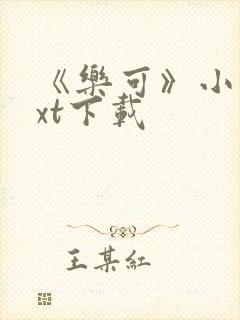 《樂可》小
xt下載
王某紅